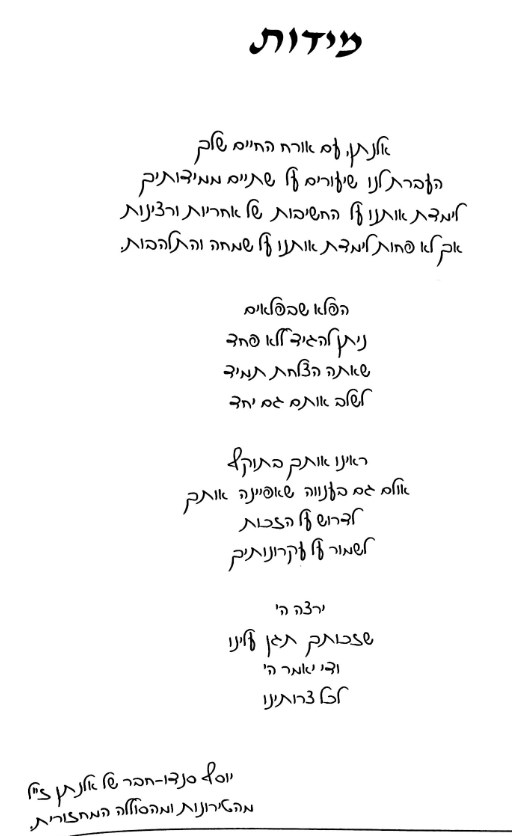 מידות
אלנתן, עם אורח החיים שלך
העברת לנו שיעורים על שתיים ממידותיך
לימדת אותנו על החשיבות של אחריות ורצינות
אך לא פחות לימדת אותנו על שמחה והתלהבות.
הפלא שבפלאים
ניתן להגיד ללא פחד
שאתה הצלחת תמיד
לשלב אותם גם יחד
ראינו אותך בתוקף
אולם גם בענווה שאפיינה אותך
לדרוש על הזכות
לשמור על עקרונותיך
ירצה ה'
שזכותך תגן עלינו
ודי יאמר ה'
לכל צרותינו
יוסף סנדו-חבר של אלנתן ז"ל
מהטירונות ומהסוללה המחזורית.